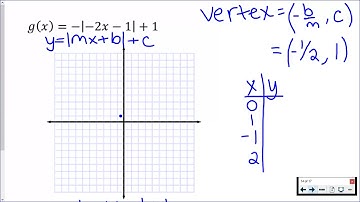 g(x) = −|−2x − 1| + 1
y=|mx+b|+c
vertex=(-b/m, c)
=(-1/2, 1)
x | y
0
1
-1
2